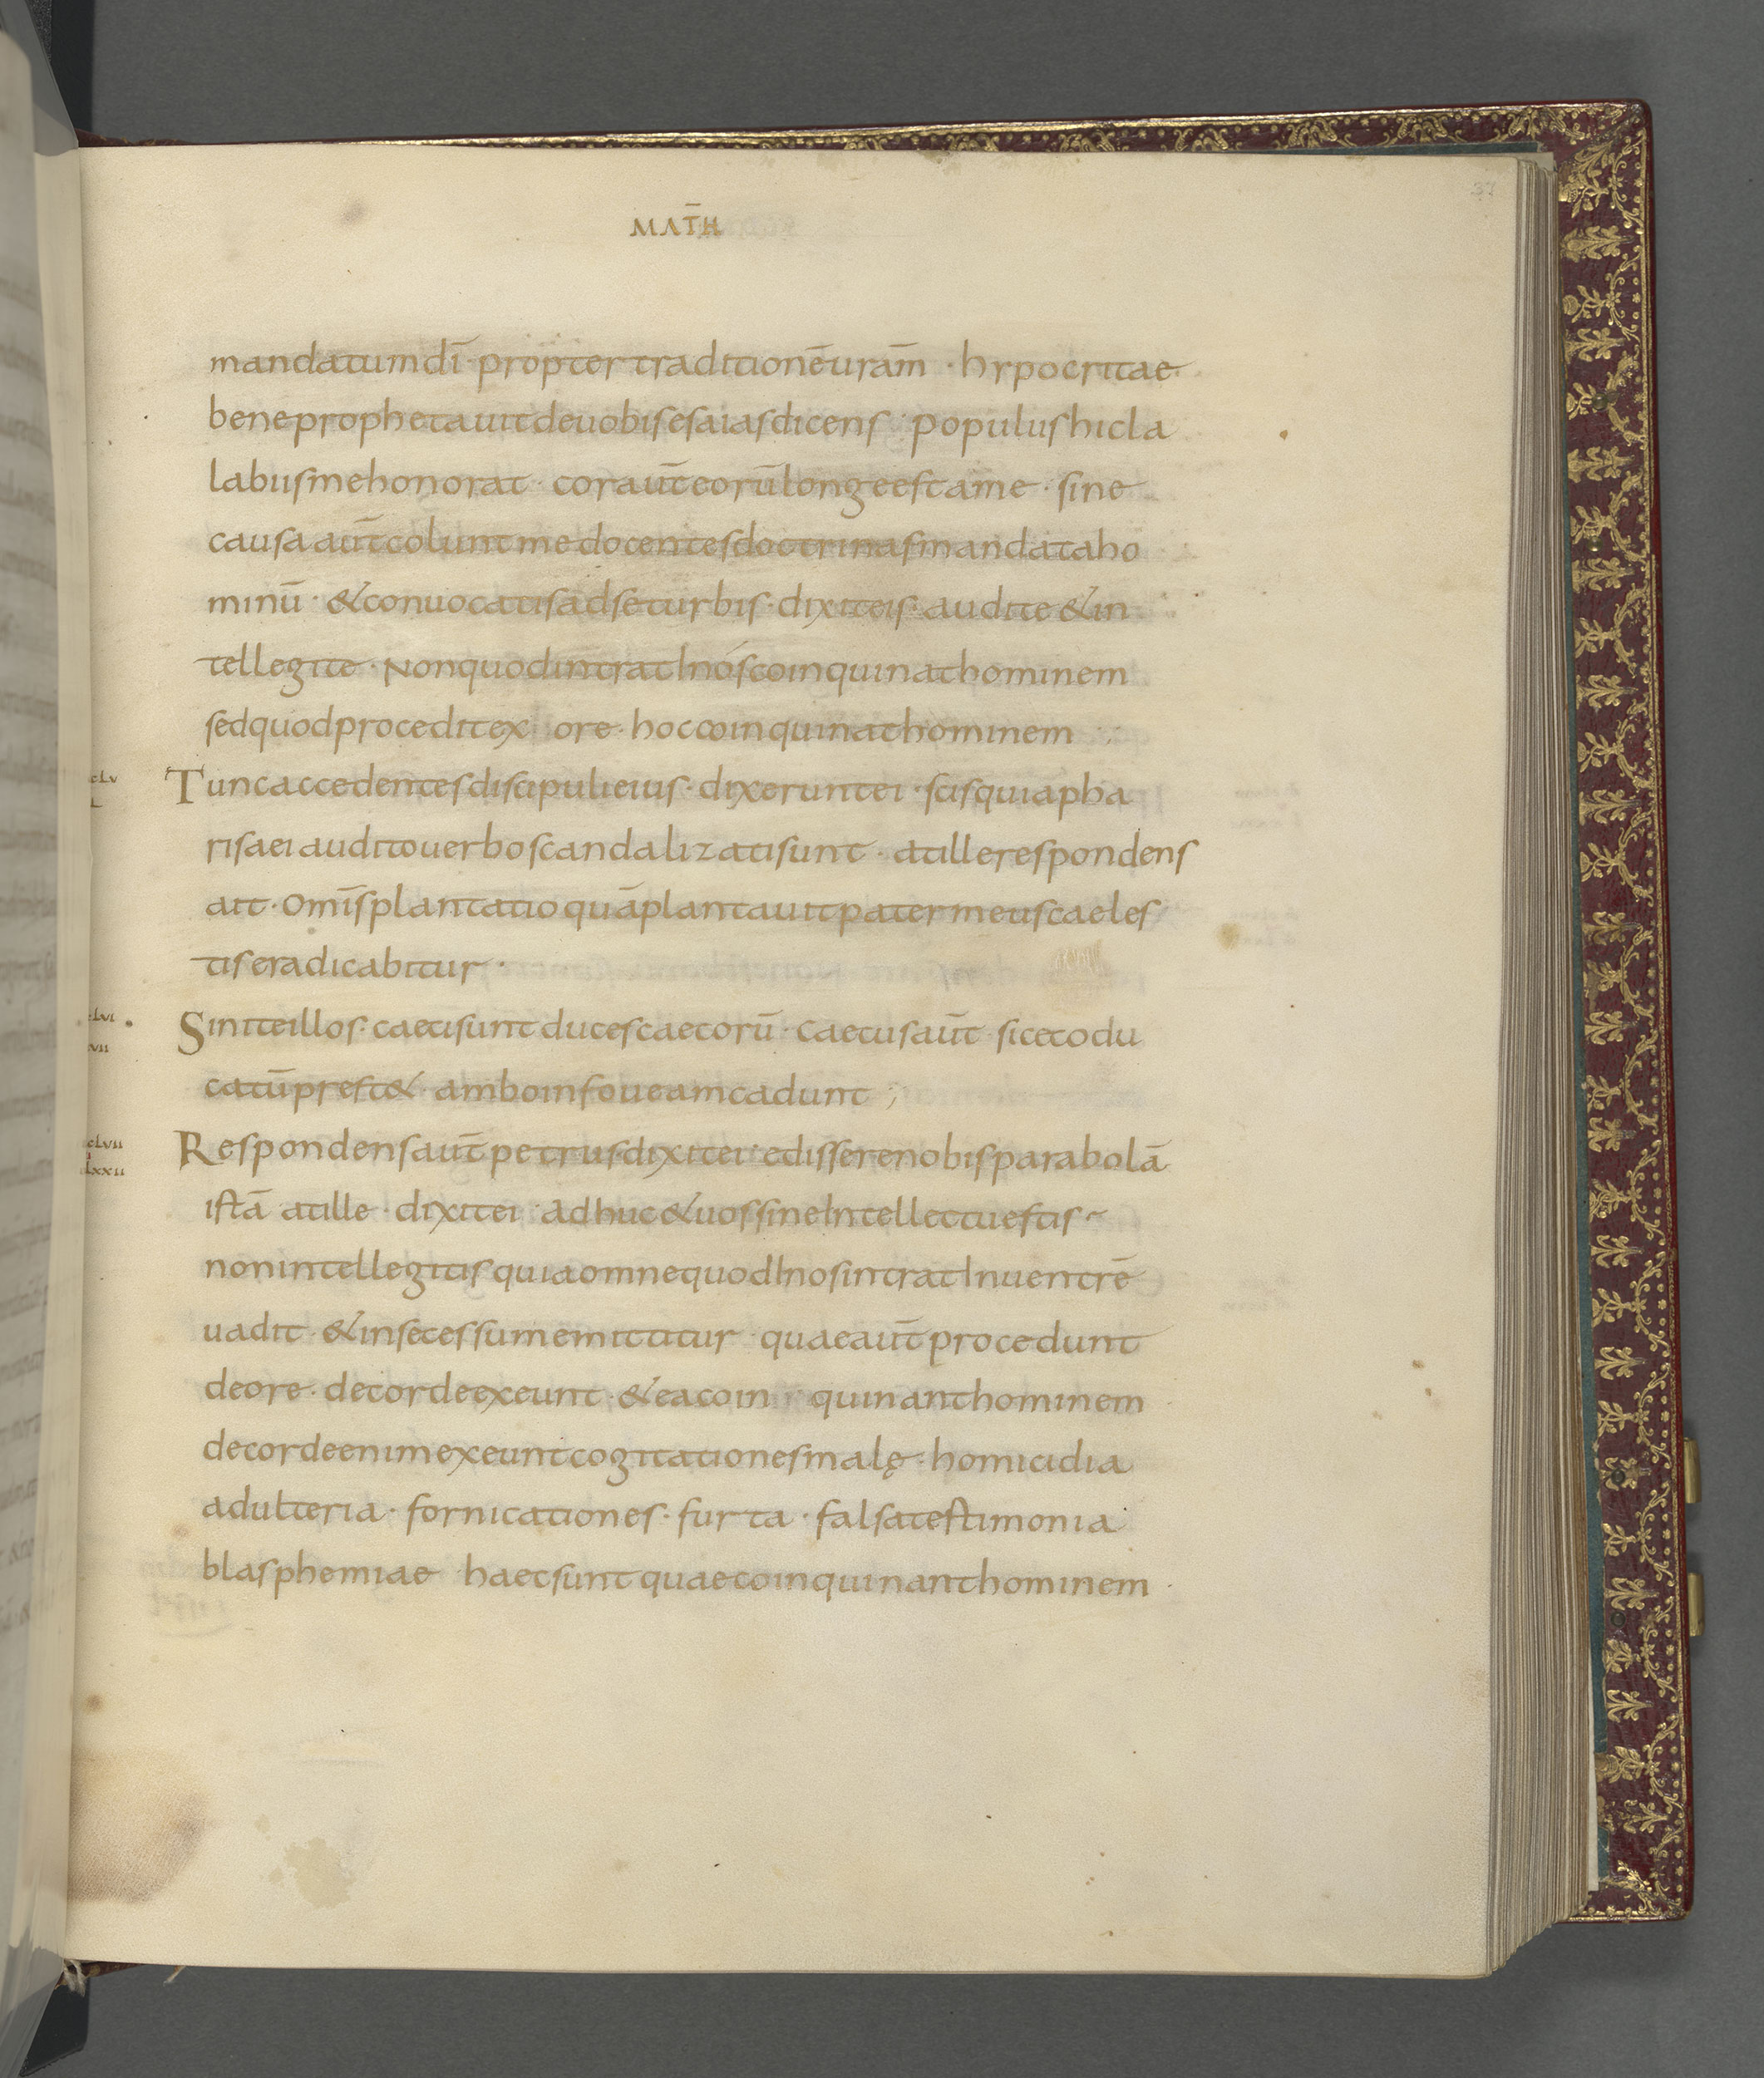 37
MAT̄H
mandatum dī · propter traditionē uram̄ · hrpocritae
bene prophetauit de uobis esaias dicens · populus hic la
labiis me honorat · cor aūt eorū longe est a me · sine
causa aūt colunt me docentes doctrinas mandata ho
minū · & conuocatis ad se turbis · dixit eis · audite & in
tellegite · Non quod intrat In os coinquinat hominem
sed quod procedit ex ore · hoc coinquinat hominem
cLv
L
Tunc accedentes discipuli eius · dixerunt ei · scis quia pha
risaei audito uerbo scandalizati sunt · at ille respondens
ait · Omīs plantatio quā plantauit pater meus caeles
tis eradicabitur ·
cLvi
vii
Sinite illos · caeci sunt duces caecorū · caecus aūt si ceco du
catū prest& · ambo in foueam cadunt ;
cLvii
Lxxii
Respondens aūt petrus · dixit ei · edissere nobis parabolā
istā at ille · dixit ei · adhuc & uos sine Intellectu estis
non intellegitis quia omne quod In os intrat In uentrē
uadit · & in secessum emittitur · quae aūt procedunt
de ore · de corde exeunt · & ea coin quinant hominem
de corde enim exeunt cogitationes malę · homicidia
adulteria · fornicationes · furta · falsa testimonia
blasphemiae haec sunt quae coinquinant hominem ·